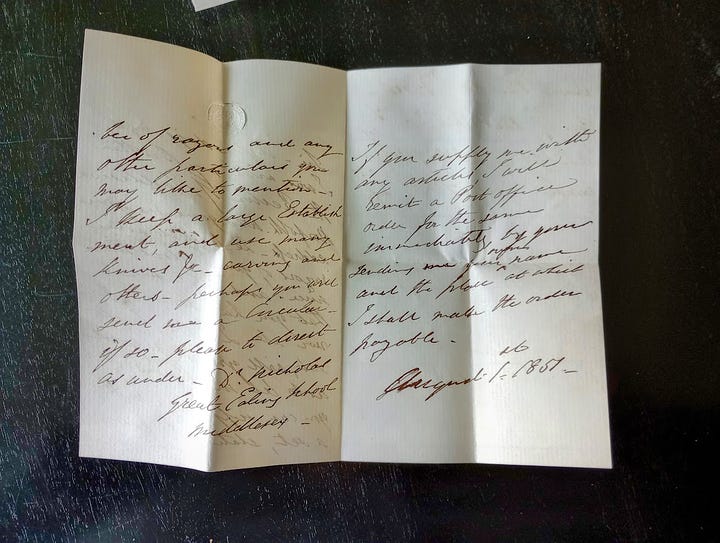 ber of razors and any
other particulars you
may like to mention -
I keep a large Establish
ment, and use many
knives &c - carving and
others - perhaps you will
send me a Circular -
if so - please to direct
as under - Dr Nicholas
Great Ealing School
Middlesex -
If you supply me with
any articles I will
remit a Post office
order for the same
immediately by your
sending me your name
and the place at which
I shall make the order
payable -
August 1st 1851 -